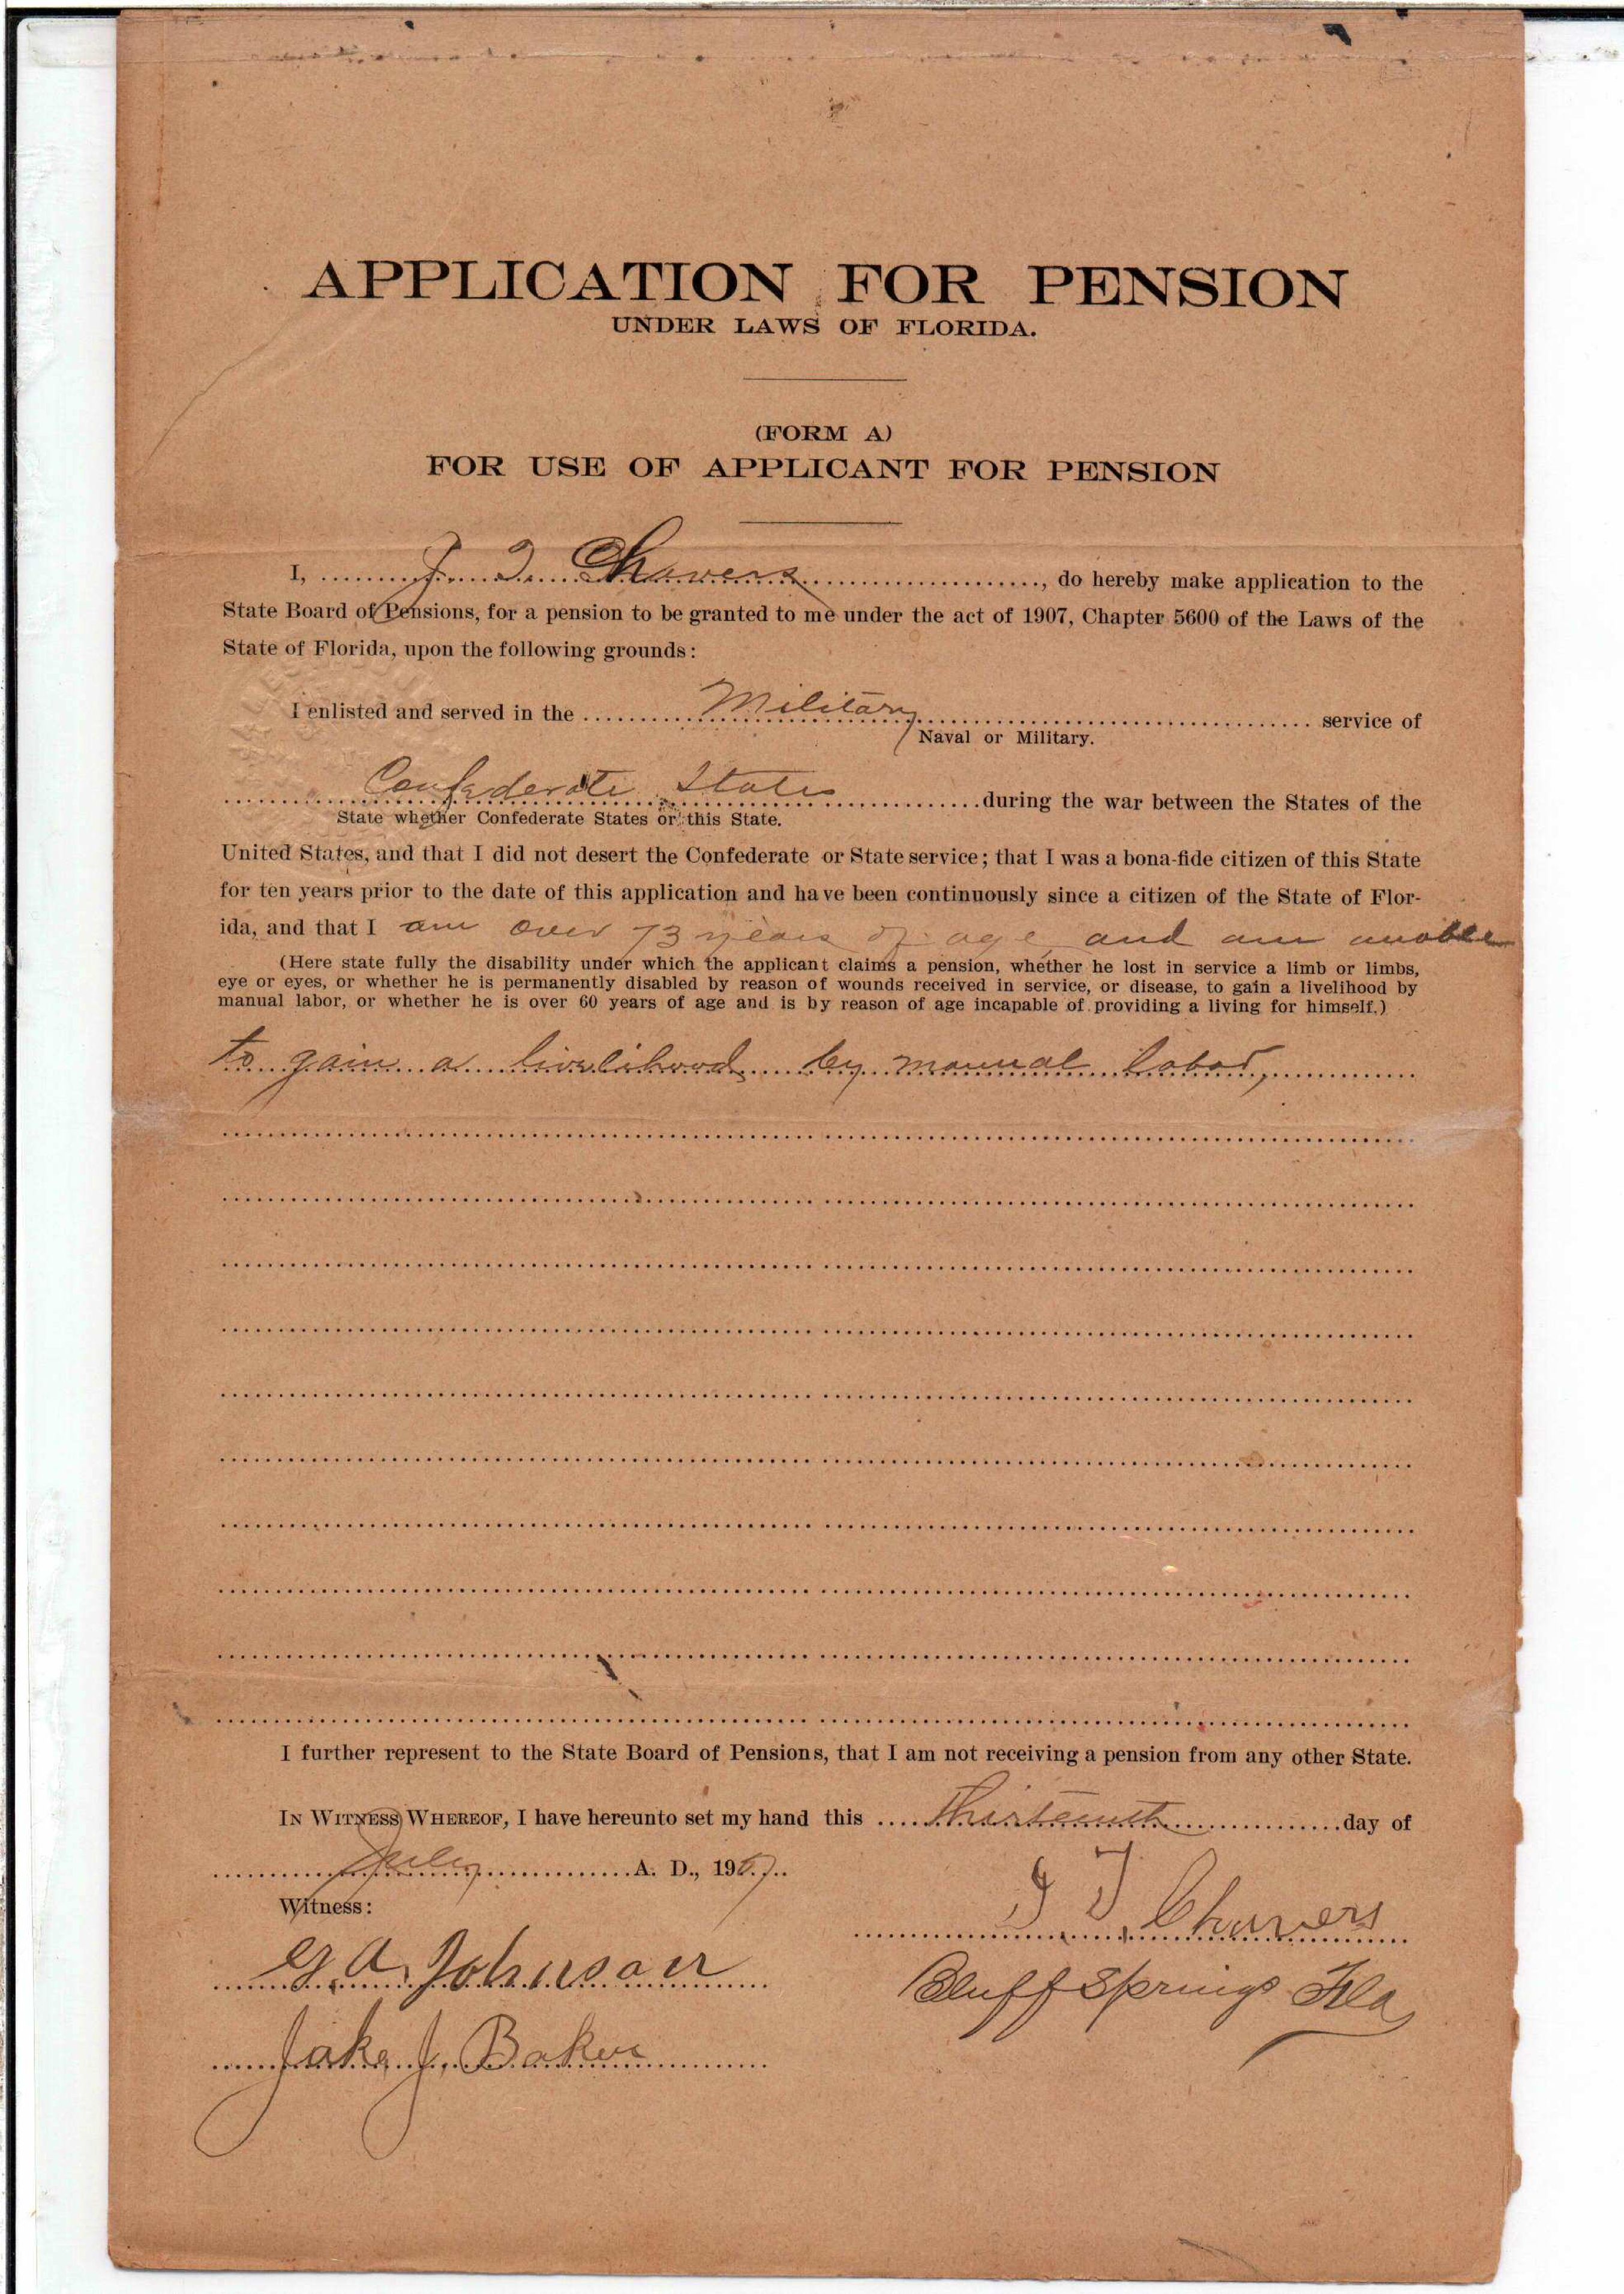 APPLICATION FOR PENSION
UNDER LAWS OF FLORIDA.
(FORM A)
FOR USE OF APPLICANT FOR PENSION
I, J. T. Chavers, do hereby make application to the
State Board of Pensions, for a pension to be granted to me under the act of 1907, Chapter 5600 of the Laws of the
State of Florida, upon the following grounds:
I enlisted and served in the Military service of
Naval or Military.
Confederate States during the war between the States of the
State whether Confederate States or this State.
United States, and that I did not desert the Confederate or State service; that I was a bona-fide citizen of this State
for ten years prior to the date of this application and have been continuously since a citizen of the State of Flor-
ida, and that I am over 73 years of age and am unable
(Here state fully the disability under which the applicant claims a pension, whether he lost in service a limb or limbs,
eye or eyes, or whether he is permanently disabled by reason of wounds received in service, or disease, to gain a livelihood by
manual labor, or whether he is over 60 years of age and is by reason of age incapable of providing a living for himself.)
to gain a livelihood by manual labor,
I further represent to the State Board of Pensions, that I am not receiving a pension from any other State.
IN WITNESS WHEREOF, I have hereunto set my hand this Thirteenth day of
July A. D., 1907.
Witness:
J T Chavers
G A Johnson
Bluff Springs Fla
Jake J. Baker